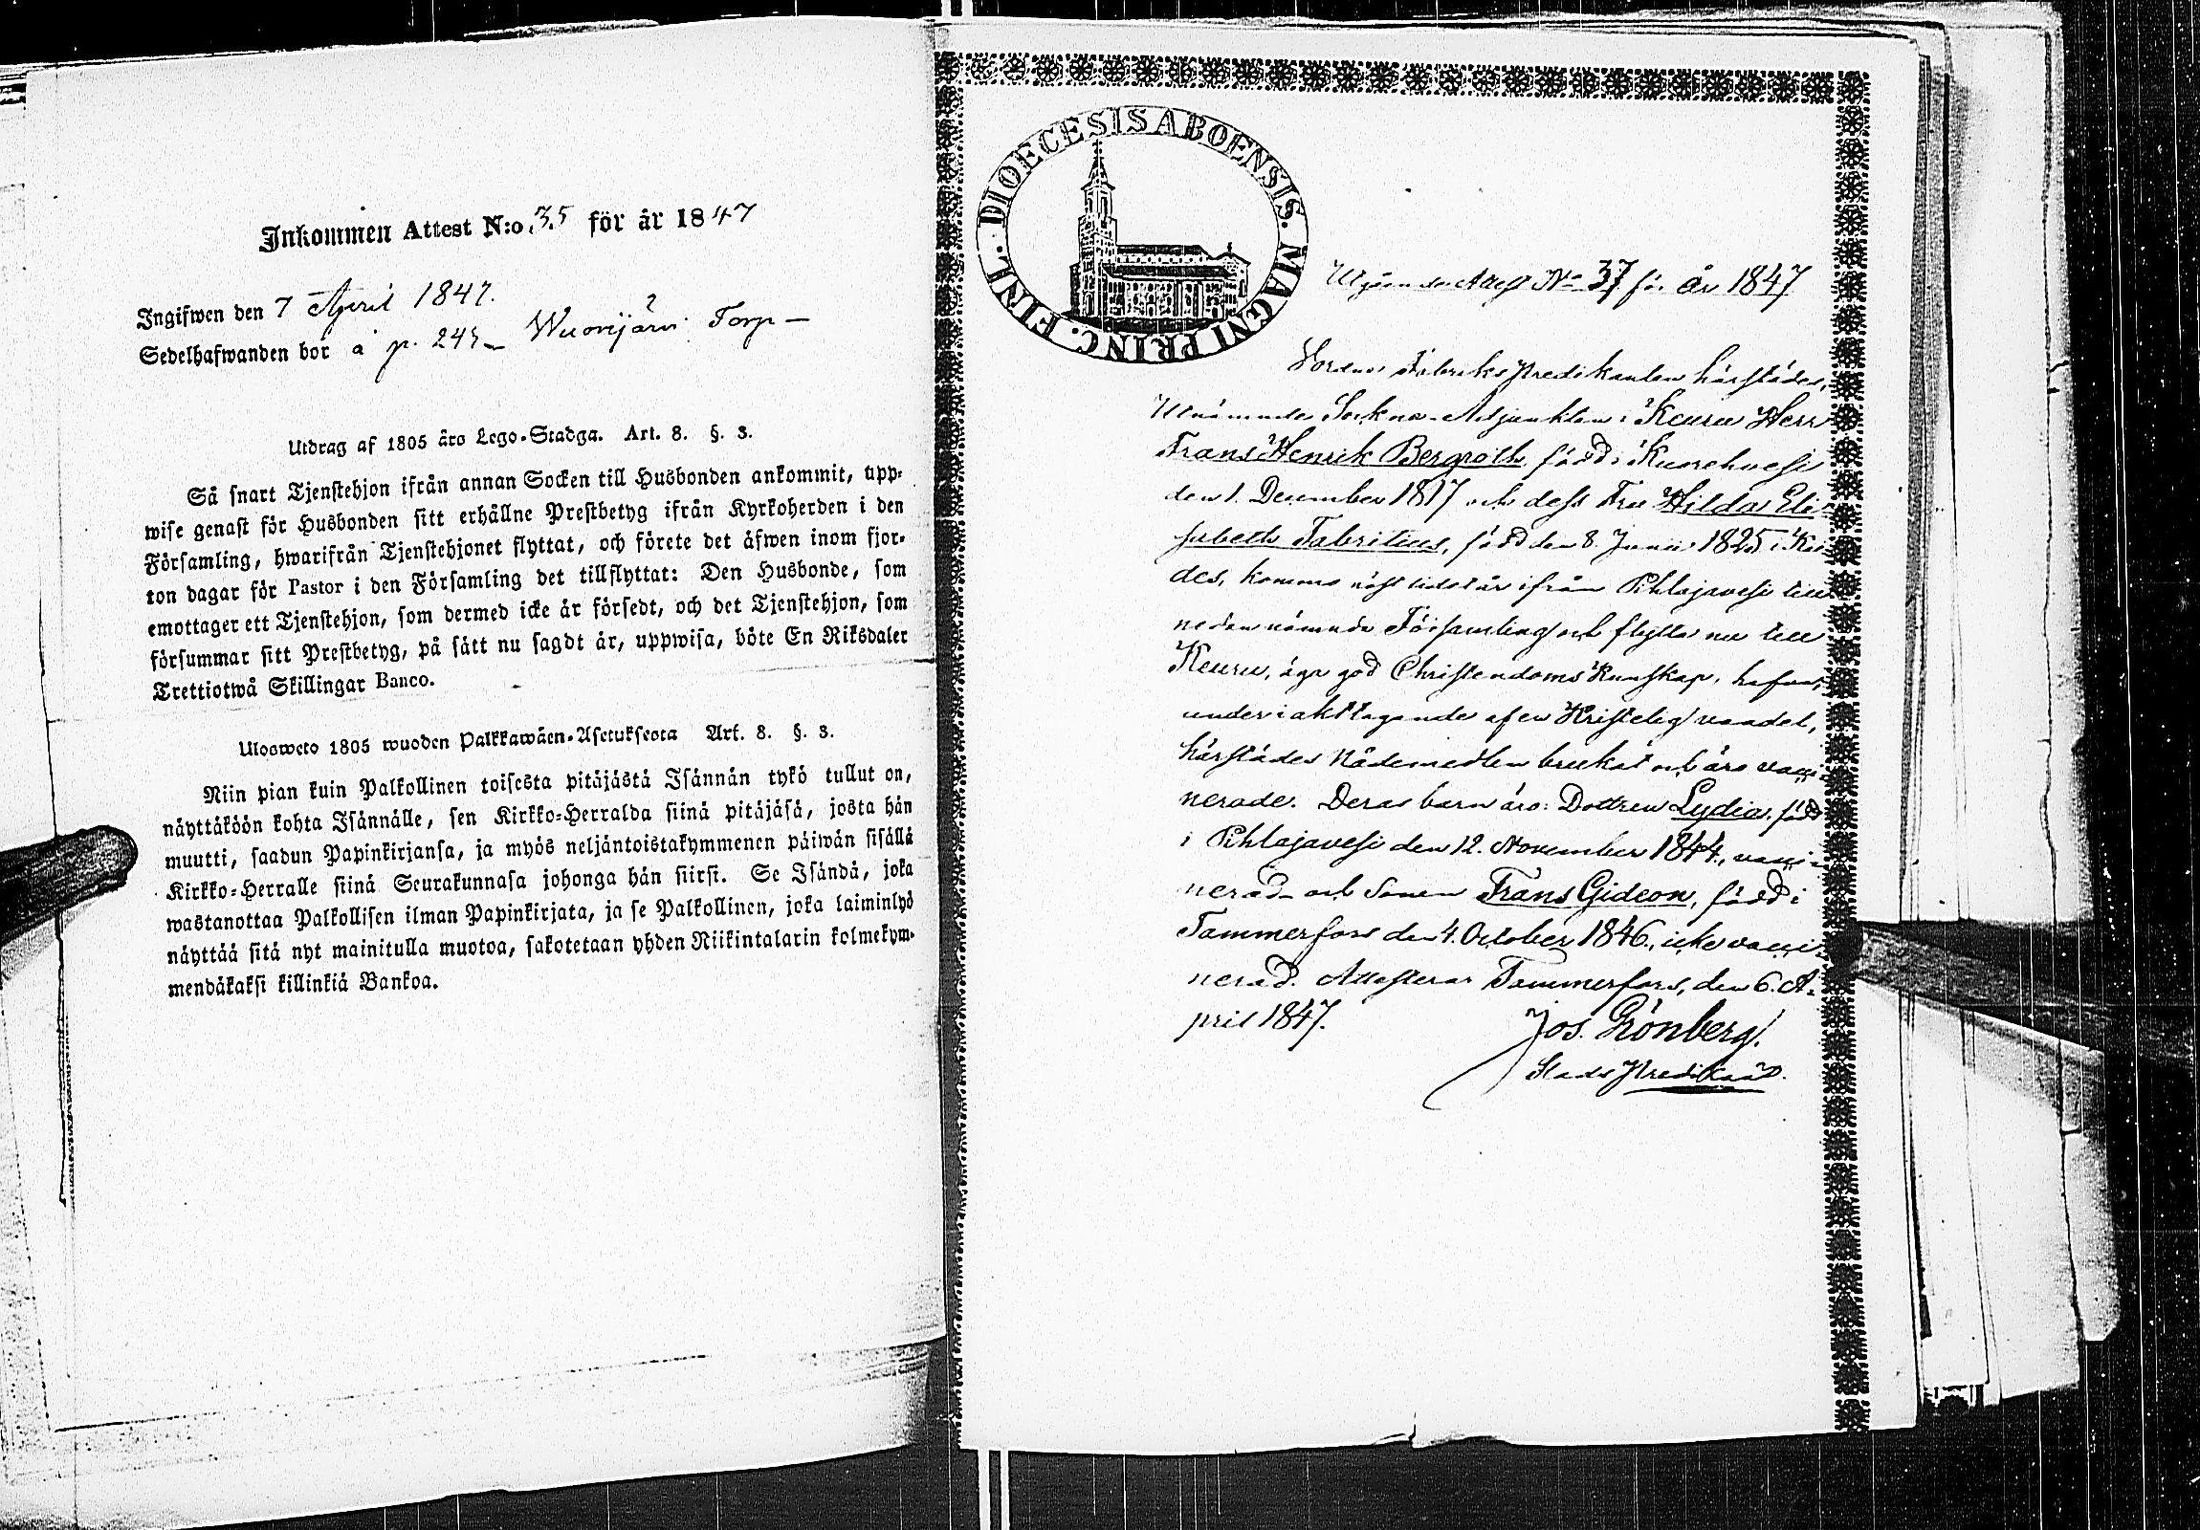 Inkommen Attest N:o 35 för år 1847
Ingifwen den 7 April 1847.
Sedelhafwanden bor å p. 245 Wuorijärvi Torp —
Utdrag af 1805 års Lego-Stadga. Art. 8. §. 3.
Så snart Tjenstehjon ifrån annan Socken till Husbonden ankommit, upp-
wise genast för Husbonden sitt erhållne Prestbetyg ifrån Kyrkoherden i den
Församling, hwarifrån Tjenstehjonet flyttat, och förete det äfwen inom fjor-
ton dagar för Pastor i den Församling det tillflyttat: Den Husbonde, som
emottager ett Tjenstehjon, som dermed icke är försedt, och det Tjenstehjon, som
försummar sitt Prestbetyg, på sätt nu sagdt är, uppwisa, böte En Riksdaler
Trettiotwå Skillingar Banco.
Ulosweto 1805 wuoden Palkkawäen-Asetuksesta Art. 8. §. 3.
Niin pian kuin Palkollinen toisesta pitäjästä Isännän tykö tullut on,
näyttäköön kohta Isännälle, sen Kirkko-Herralda siinä pitäjäsä, josta hän
muutti, saadun Papinkirjansa, ja myös neljäntoistakymmenen päiwän sisällä
Kirkko-Herralle siinä Seurakunnasa johonga hän siirsi. Se Isändä, joka
wastanottaa Palkollisen ilman Papinkirjata, ja se Palkollinen, joka laiminlyö
näyttää sitä nyt mainitulla muotoa, sakotetaan yhden Riikintalarin kolmekym-
mendäkaksi killinkiä Bankoa.
DIOECESIS ABOENSIS. MAGNI PRINC. FINL.
Utgående Attest No 37 för år 1847
Vordne Fabriks Predikanten härstädes,
Utnämnde Sockne-Adjunkten i Keuru Herr
Frans Henrik Bergroth, född i Kuorehvesi
den 1. December 1817 och dess Fru Hilda Eli-
sabeth Fabritius, född den 8. Junii 1825 i Ki-
des, komme näst lidet år ifrån Pihlajavesi till
nedannämnde Församling och flytta nu till
Keuru, äga god Christendoms Kunskap, hafva,
under iakttagande af en Kristelig vandel,
härstädes Nådemedlen brukat och äro vacci-
nerade. Deras barn äro: Dottren Lydia, född
i Pihlajavesi den 12. November 1844, vacci-
nerad och Sonen Frans Gideon, född i
Tammerfors den 4. October 1846, icke vacci-
nerad. Attesterar Tammerfors, den 6. A-
pril 1847.
Jos. Grönberg.
Stads Predikant.